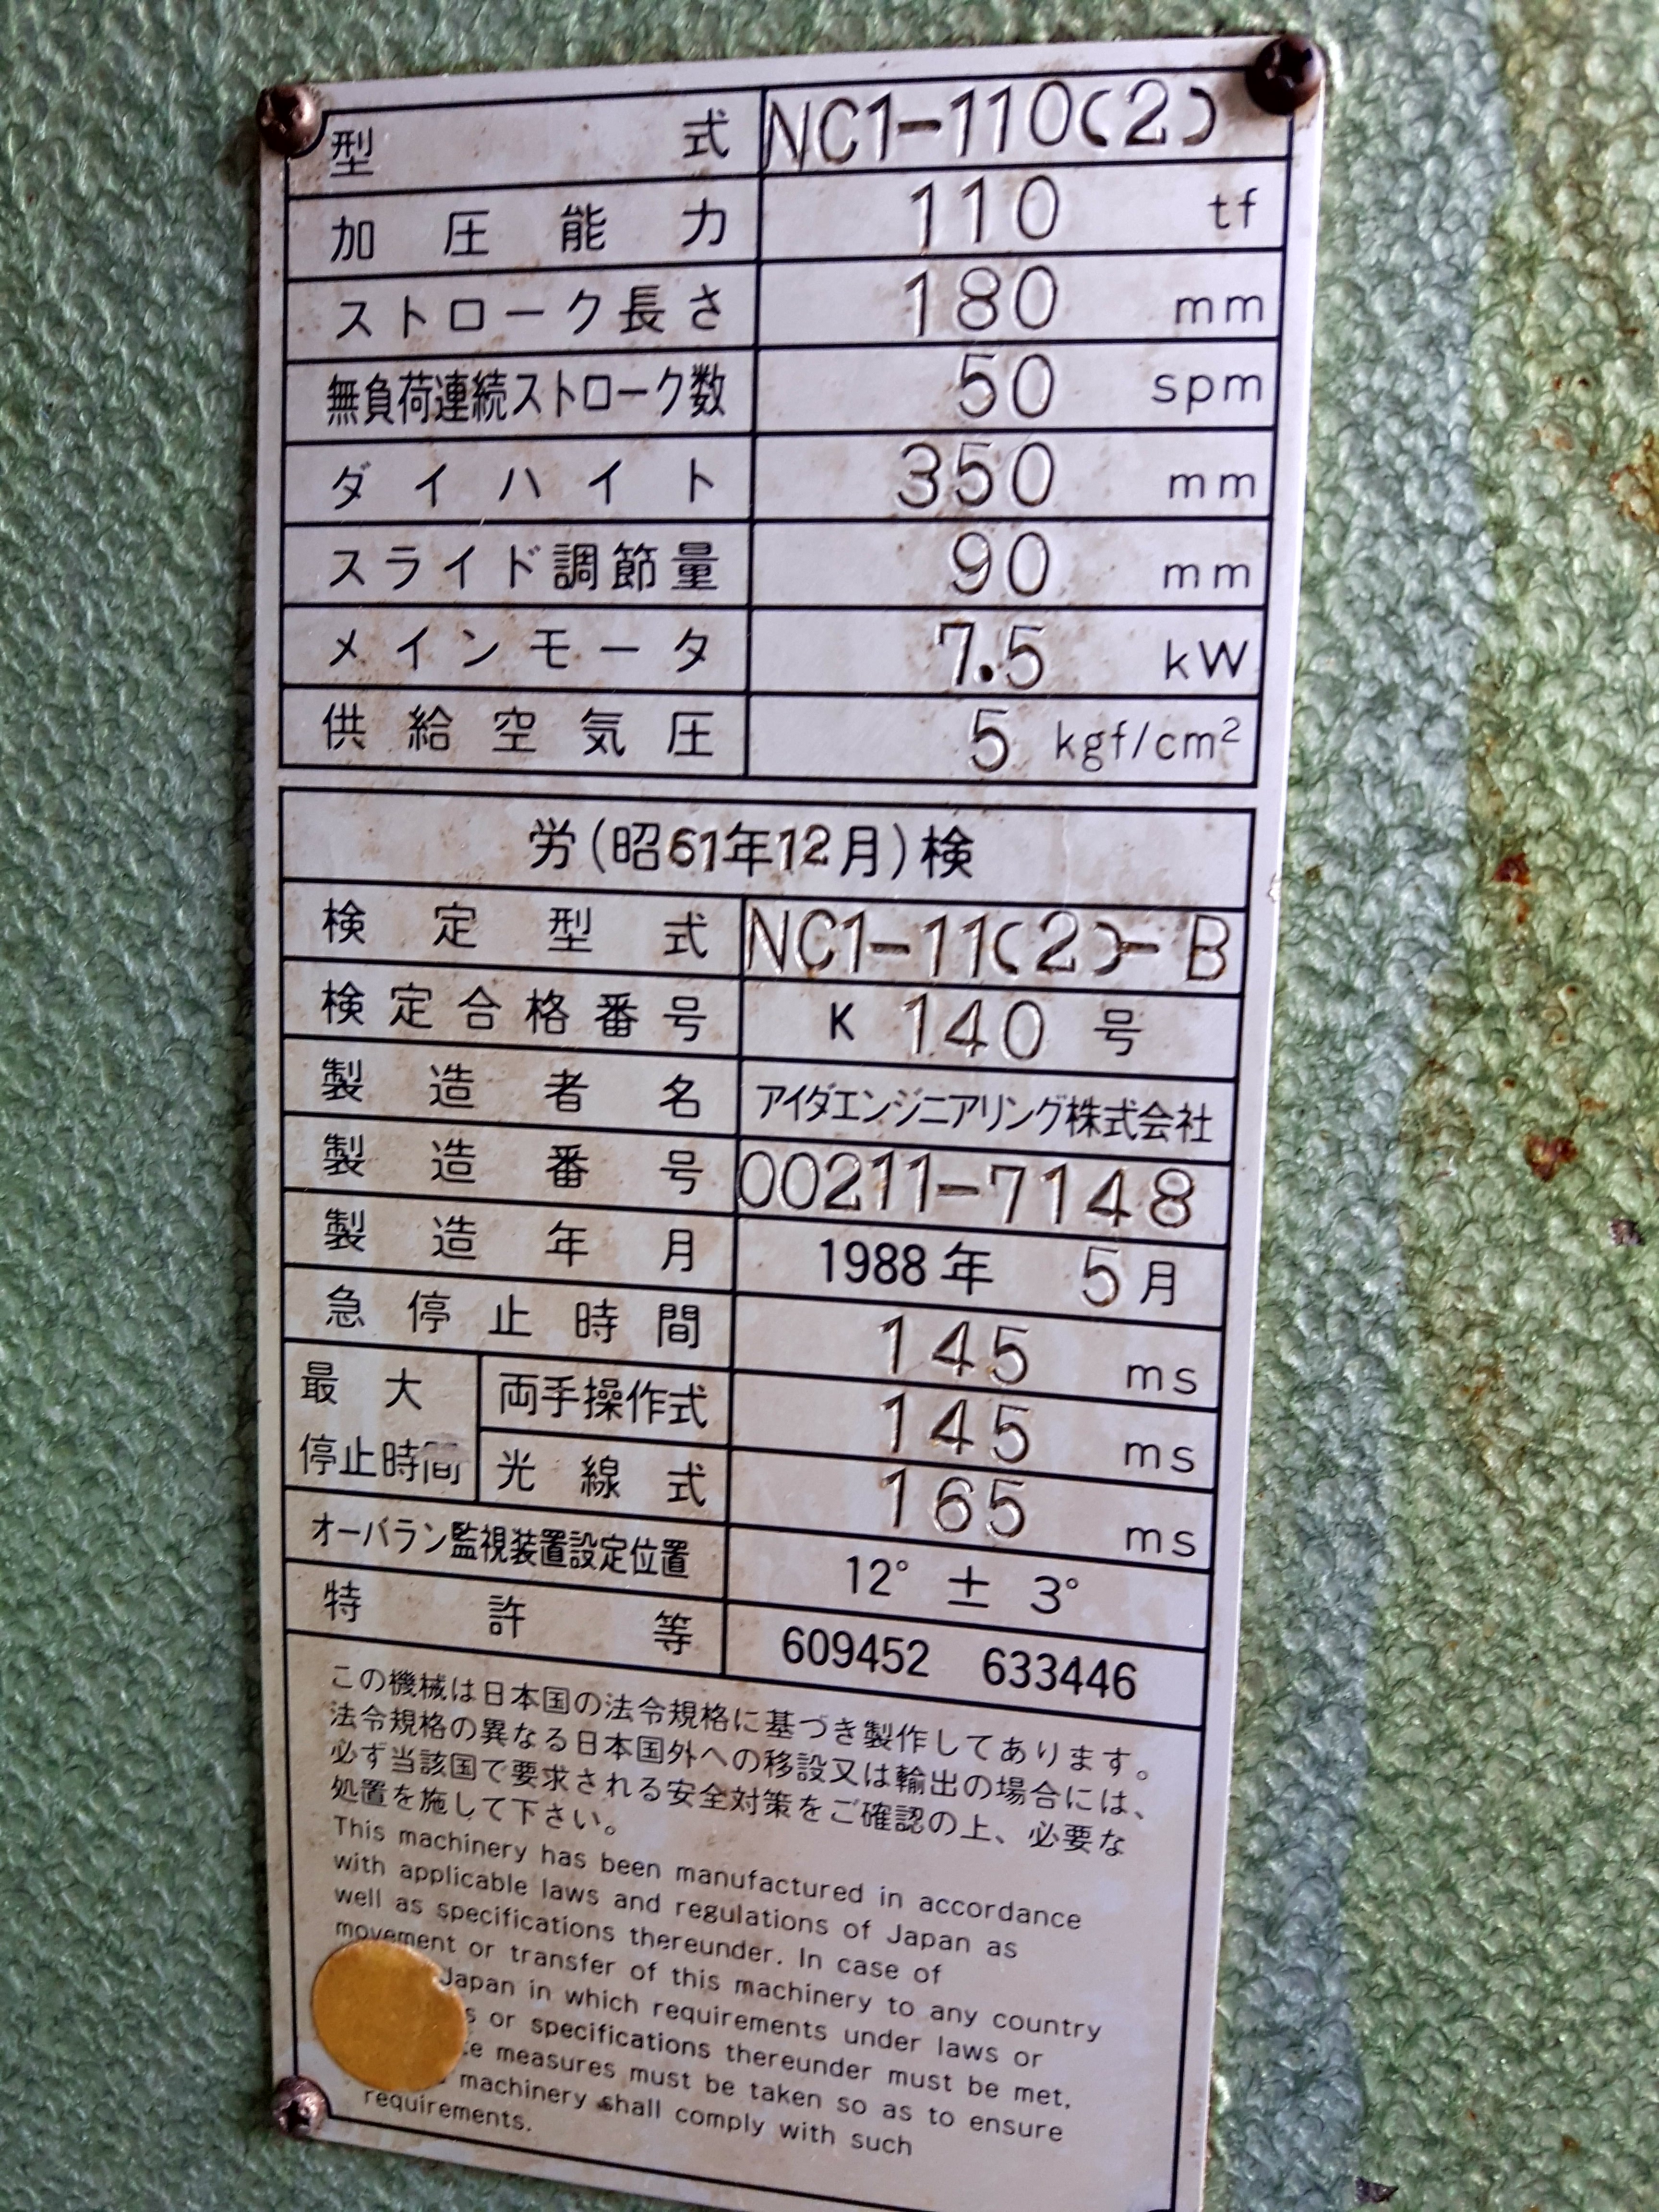 型式 NC1-110(2)
加圧能力 110 tf
ストローク長さ 180 mm
無負荷連続ストローク数 50 spm
ダイハイト 350 mm
スライド調節量 90 mm
メインモータ 7.5 kW
供給空気圧 5 kgf/cm²
労(昭61年12月)検
検定型式 NC1-11(2)-B
検定合格番号 K 140 号
製造者名 アイダエンジニアリング株式会社
製造番号 00211-7148
製造年月 1988年 5月
急停止時間 145 ms
最大停止時間 両手操作式 145 ms
光線式 165 ms
オーバラン監視装置設定位置 12° ± 3°
特許等 609452 633446
この機械は日本国の法令規格に基づき製作してあります。
法令規格の異なる日本国外への移設又は輸出の場合には、
必ず当該国で要求される安全対策をご確認の上、必要な
処置を施して下さい。
This machinery has been manufactured in accordance
with applicable laws and regulations of Japan as
well as specifications thereunder. In case of
movement or transfer of this machinery to any country
Japan in which requirements under laws or
or specifications thereunder must be met,
measures must be taken so as to ensure
machinery shall comply with such
requirements.